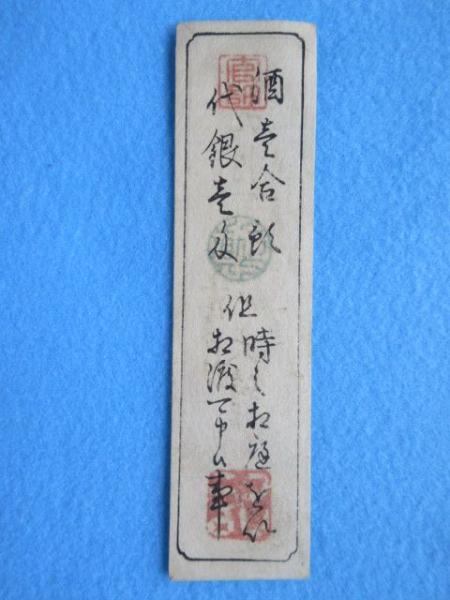 酒壱合預
代銀壱匁
但
時之相庭を以
相渡可申候事